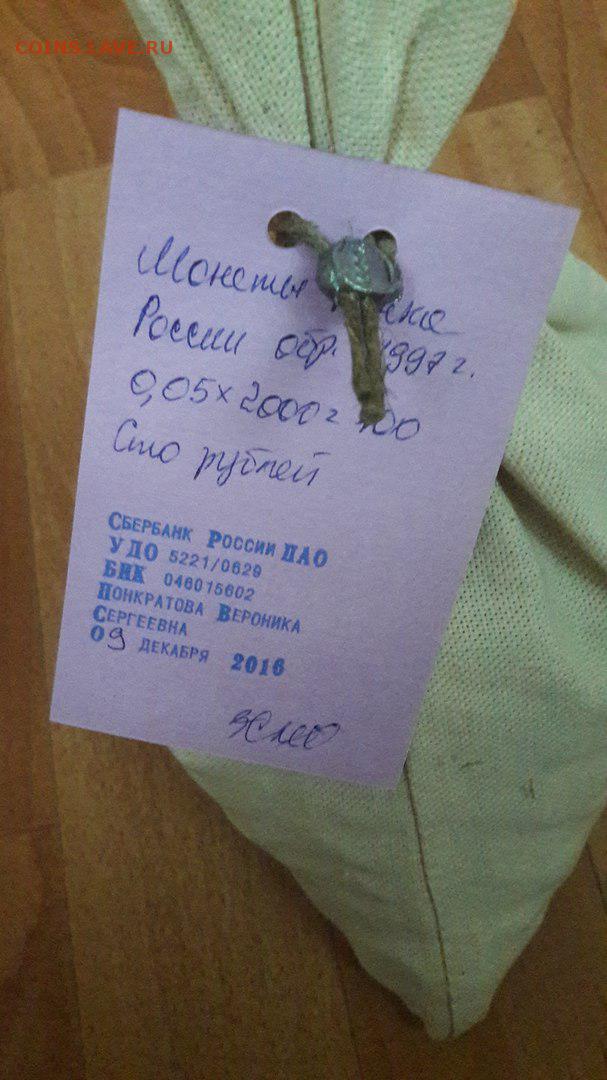 COINS.LAVE.RU
Монеты
России обр. 1997 г.
0,05 х 2000 = 100
Сто рублей
Сбербанк России ПАО
УДО 5221/0629
БИК 046015602
Понкратова Вероника
Сергеевна
09 декабря 2016